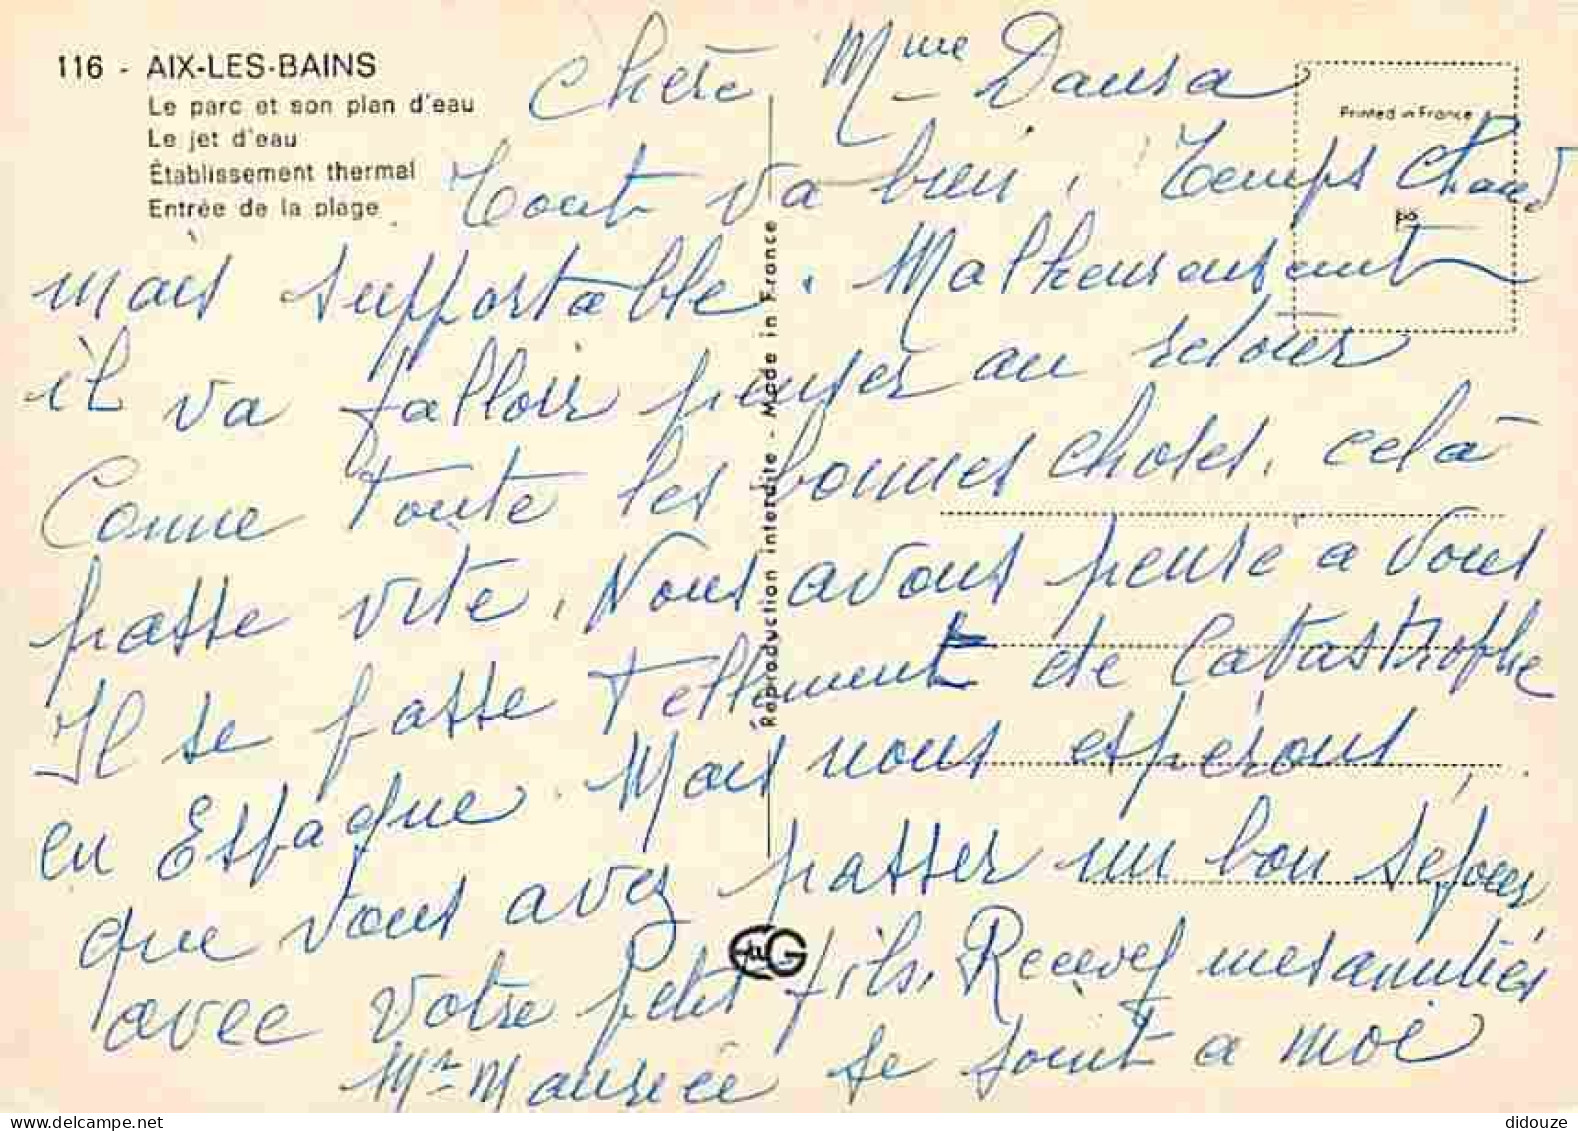 116 - AIX-LES-BAINS
Le parc et son plan d'eau
Le jet d'eau
Établissement thermal
Entrée de la plage
Printed in France
Reproduction interdite - Made in France
Chère Mme Dausa
Tout va bien, Temps chaud
mais supportable. Malheureusement
il va falloir penser au retour
Comme toute les bonnes choses, celà
passe vite, Nous avons pense a vous
Il se passe tellement de Catastrophe
en Espagne. Mais nous espérons,
que vous avez passer un bon séjour
avec votre petit fils, Recevez mes amitiés
Mr Maurice se joint a moi
didouze